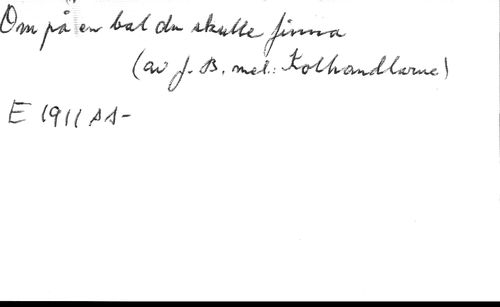 Om på en bal du skulle finna
(av J. B. mel.: Kolhandlarne)
E 1911 s 1-